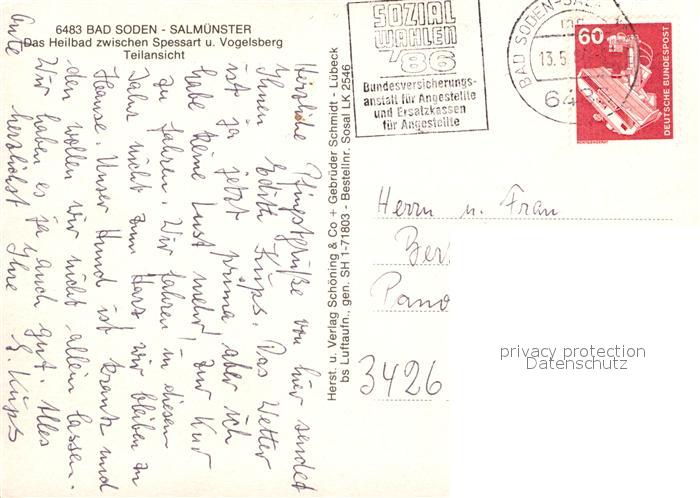 6483 BAD SODEN - SALMÜNSTER
Das Heilbad zwischen Spessart u. Vogelsberg
Teilansicht
Herzliche Pfingstgrüße von hier sendet
Ihnen Edith Küps. Das Wetter
ist ja jetzt prima aber ich
habe keine Lust mehr! zur Kur
zu fahren. Wir fahren in diesem
Jahr nicht zum Harz wir bleiben zu
Hause. Unser Hund ist krank und
den wollen wir nicht allein lassen.
Wir haben es ja auch gut. Alles
Gute herzlichst Ihre E. Küps
Herst. u. Verlag Schöning & Co + Gebrüder Schmidt - Lübeck
bs Luftaufn., gen. SH 1-71803 - Bestellnr. Sosal LK 2546
SOZIAL
WAHLEN
'86
Bundesversicherungs-
anstalt für Angestellte
und Ersatzkassen
für Angestellte
BAD SODEN-SAL
13.5.
64
60
DEUTSCHE BUNDESPOST
RÖNTGENGERÄT
Herrn u. Frau
Ber
Pano
3426
privacy protection
Datenschutz